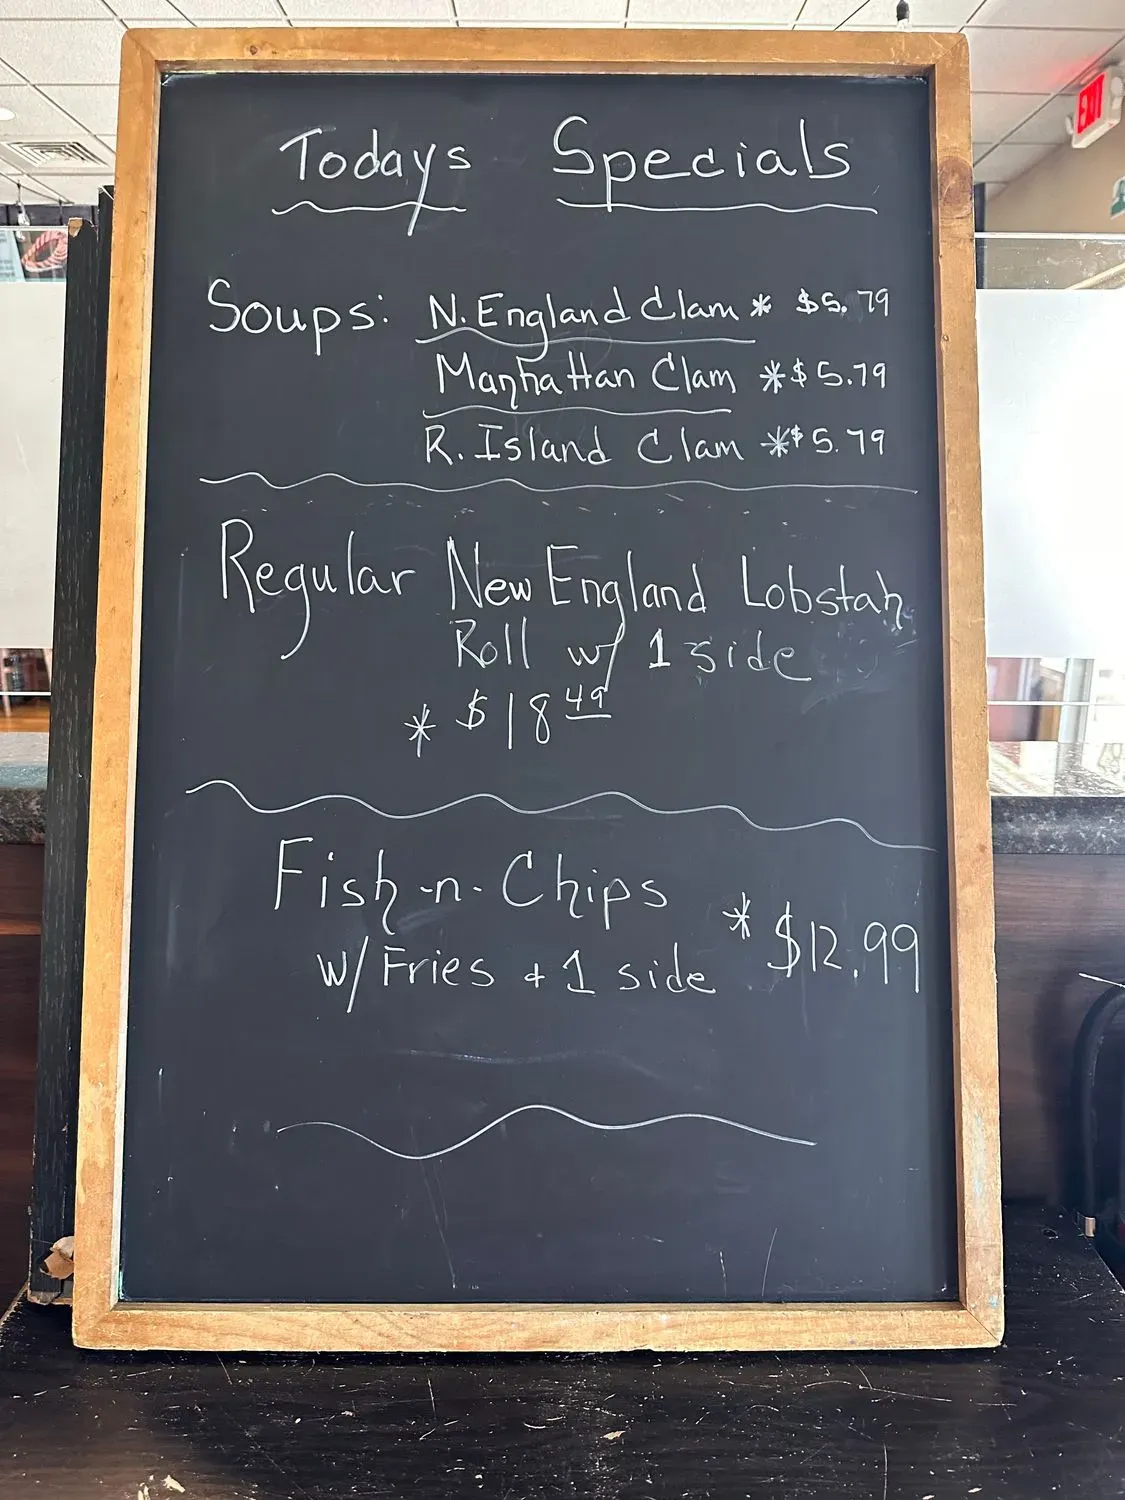 Todays Specials
Soups: N. England Clam * $5.79
Manhattan Clam * $5.79
R. Island Clam * $5.79
Regular New England Lobstah
Roll w/ 1 side
* $18 49
Fish-n-Chips
w/ Fries + 1 side * $12.99
EXIT